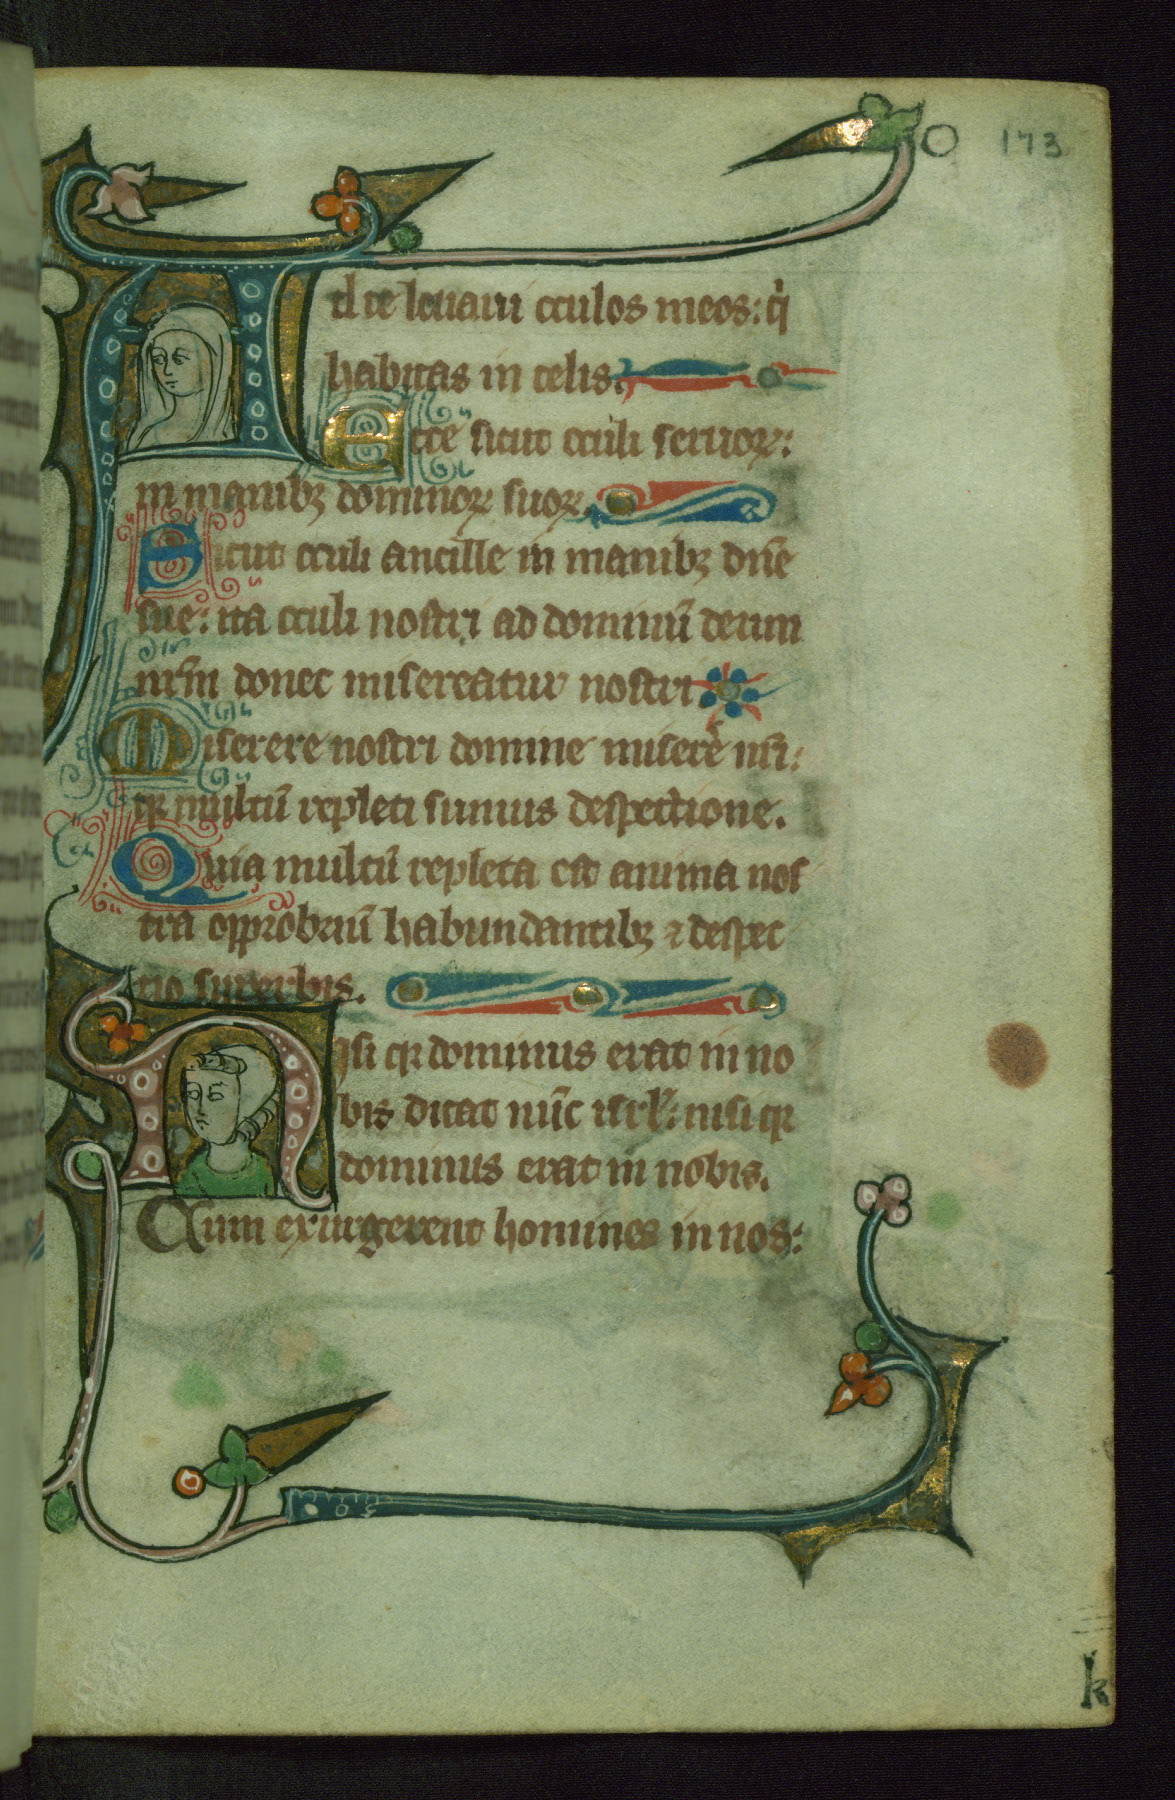 O 173
Ad te levavi oculos meos: qͥ
habitas in celis.
Ecce sicut oculi servoꝝ:
in manibꝫ dominoꝝ suoꝝ.
Sicut oculi ancille in manibꝫ dn̄e
sue: ita oculi nostri ad dominū deum
nr̄m donec misereatur nostri.
Miserere nostri domine miserē nr̄i:
qꝛ multū repleti sumus despectione.
Quia multū repleta est anima nos
tra opprobriū habundantibꝫ ⁊ despec
tio superbis.
Nisi qꝛ dominus erat in no
bis dicat nūc isrl̄: nisi qꝛ
dominus erat in nobis.
Cum exurgerent homines in nos:
k